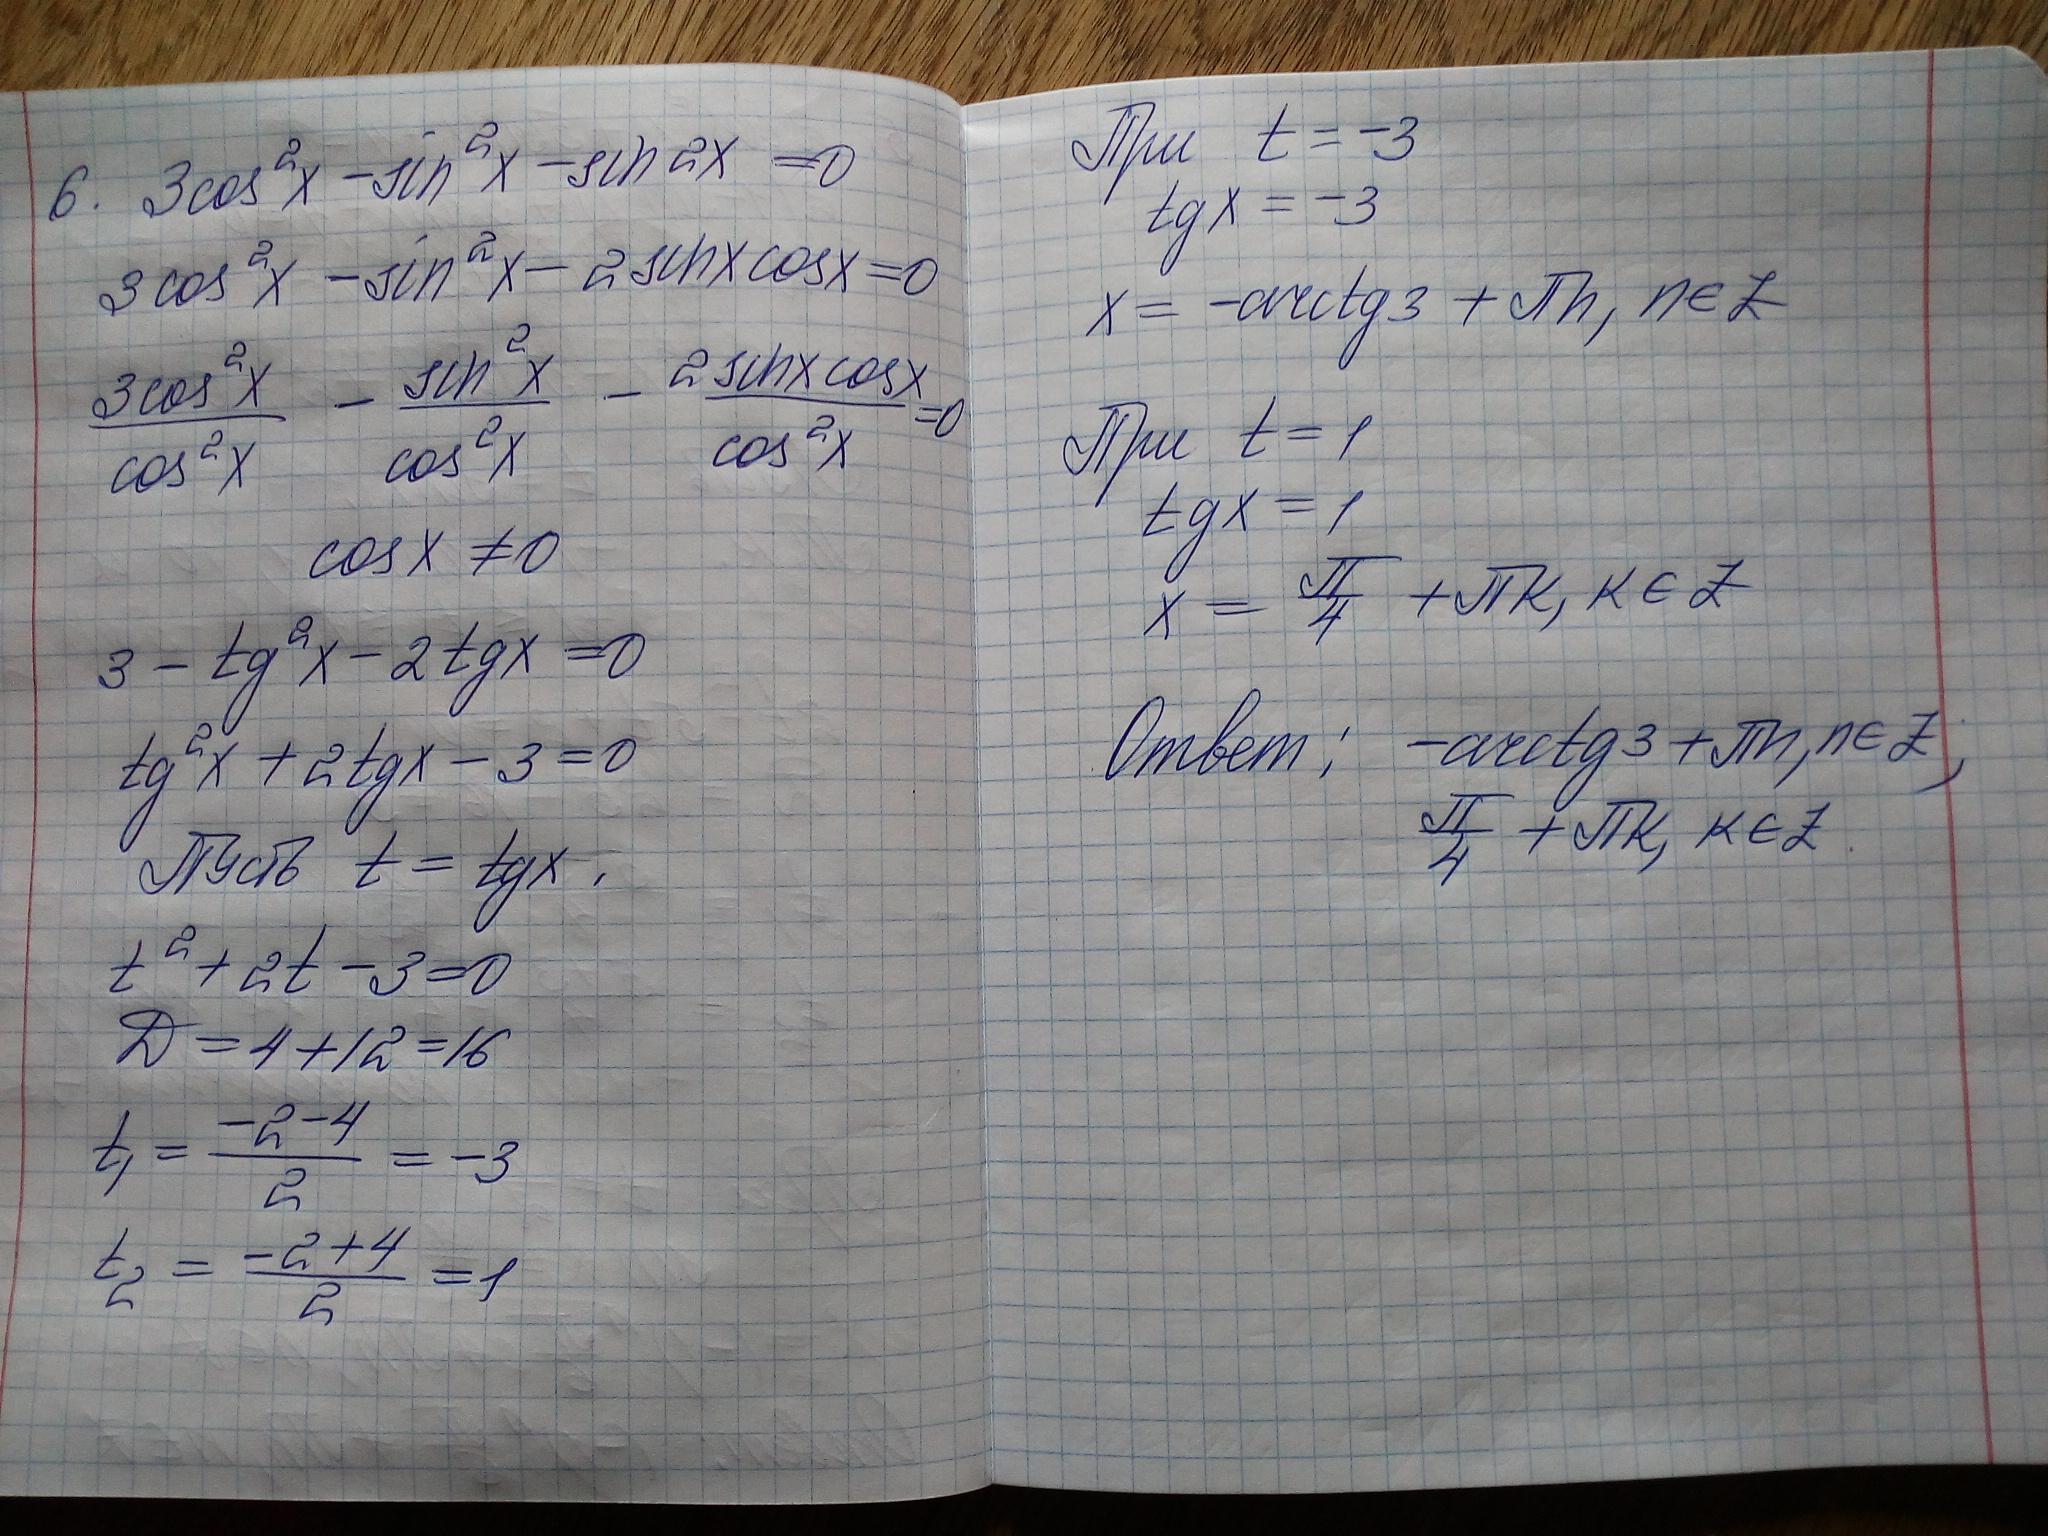 6. 3cos²x - sin²x - sin2x = 0
3cos²x - sin²x - 2sinxcosx = 0
3cos²x/cos²x - sin²x/cos²x - 2sinxcosx/cos²x = 0
cosx ≠ 0
3 - tg²x - 2tgx = 0
tg²x + 2tgx - 3 = 0
Пусть t = tgx.
t² + 2t - 3 = 0
Д = 4 + 12 = 16
t₁ = (-2-4)/2 = -3
t₂ = (-2+4)/2 = 1
При t = -3
tgx = -3
x = -arctg3 + πn, n∈Z
При t = 1
tgx = 1
x = π/4 + πk, k∈Z
Ответ: -arctg3 + πn, n∈Z;
π/4 + πk, k∈Z.